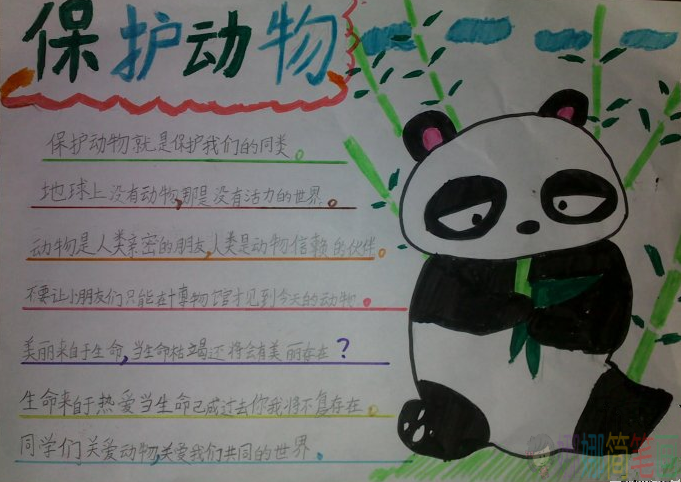 保护动物
保护动物就是保护我们的同类。
地球上没有动物,那是没有活力的世界。
动物是人类亲密的朋友,人类是动物信赖的伙伴。
不要让小朋友们只能在博物馆才见到今天的动物。
美丽来自于生命,当生命枯竭还将会有美丽存在？
生命来于热爱当生命已成过去你我将不复存在。
同学们关爱动物,关爱我们共同的世界。
简笔画